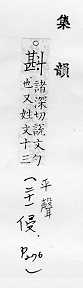 集韻
。斟諸深切說文勺
也又姓文十三
平聲
(二十一)侵.